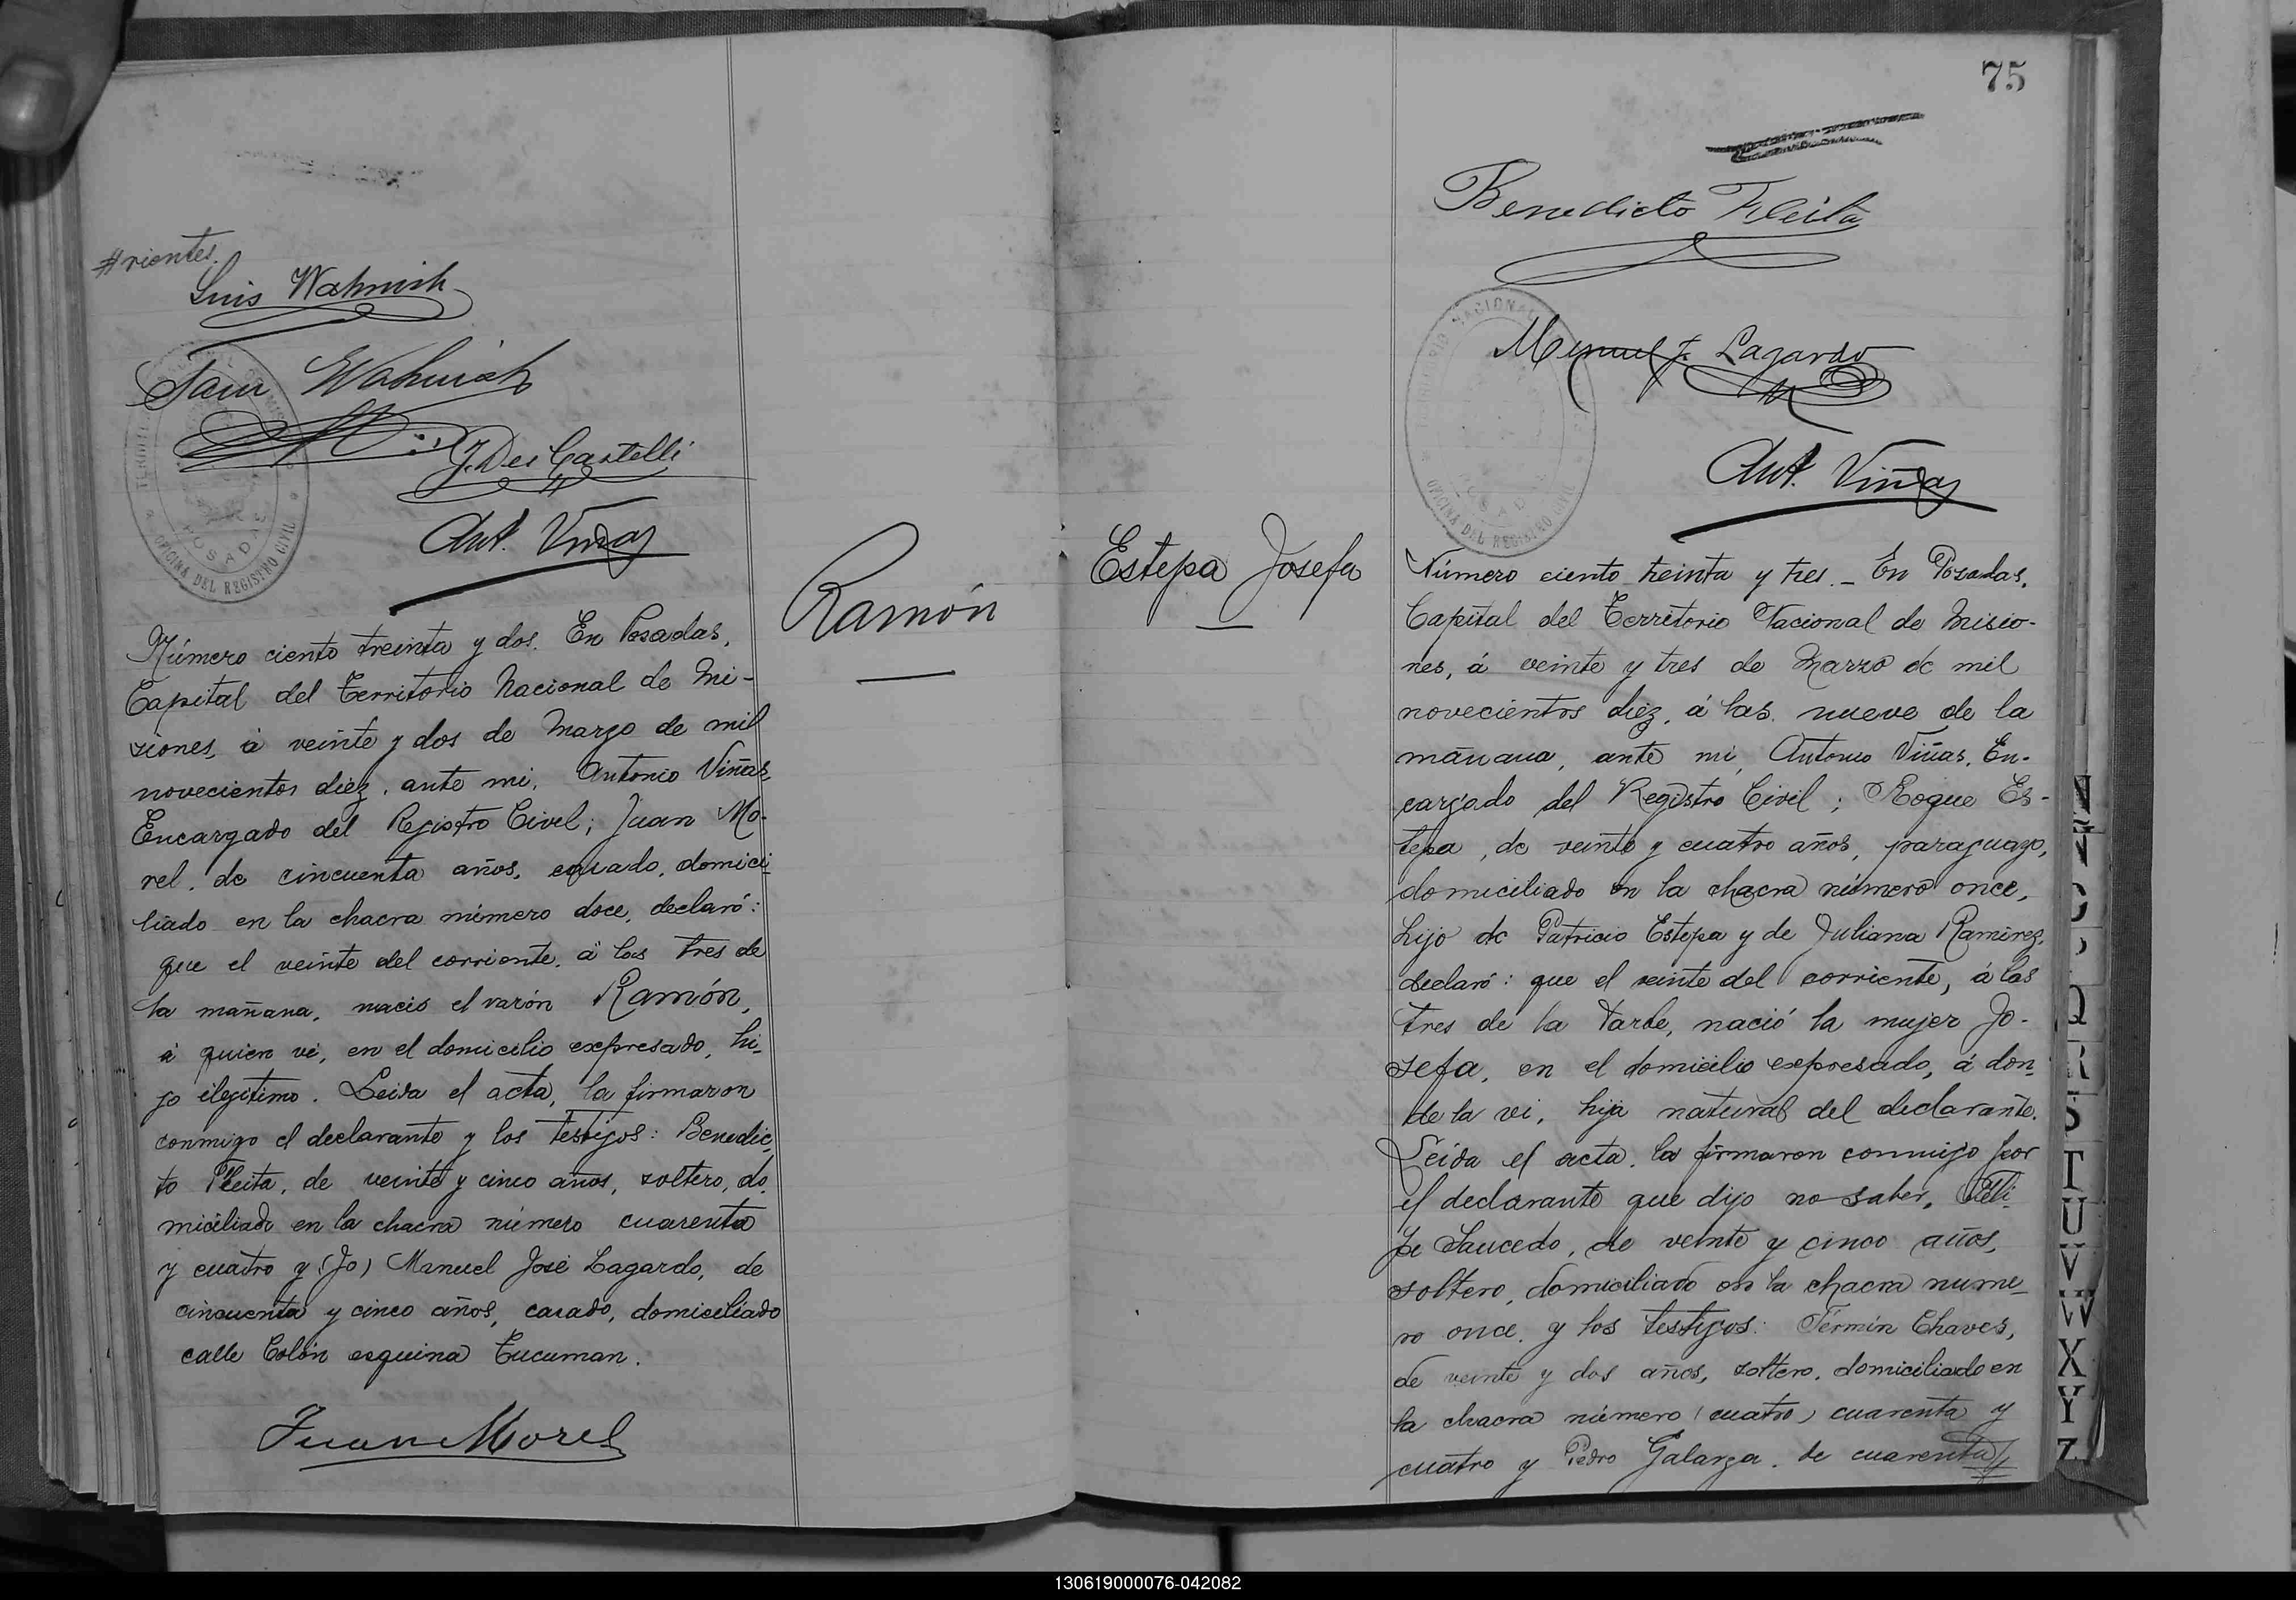 #rientes.
Luis Wahnish
Sam Wahnish
J. Des Castelli
TERRITORIO NACIONAL DE MISIONES
POSADAS
OFICINA DEL REGISTRO CIVIL
Ant. Viñas
Número ciento treinta y dos. En Posadas,
Capital del Territorio Nacional de Mi-
siones, á veinte y dos de Marzo de mil
novecientos diez, ante mi, Antonio Viñas,
Encargado del Registro Civil; Juan Mo-
rel, de cincuenta años, casado, domici-
liado en la chacra número doce, declaró:
que el veinte del corriente, á las tres de
la mañana, nació el varón Ramón,
á quien vi, en el domicilio expresado, hi-
jo ilegitimo. Leida el acta, la firmaron
conmigo el declarante y los testigos: Benedic-
to Fleita, de veinte y cinco años, soltero, do-
miciliado en la chacra número cuarenta
y cuatro y (Jo) Manuel José Lagardo, de
cincuenta y cinco años, casado, domiciliado
calle Colón esquina Tucuman.
Juan Morel
Ramón
75
Benedicto Fleita
Manuel J. Lagardo
TERRITORIO NACIONAL
POSADAS
OFICINA DEL REGISTRO CIVIL
Ant. Viñas
Estepa Josefa
Número ciento treinta y tres. _ En Posadas,
Capital del Territorio Nacional de Misio-
nes, á veinte y tres de Marzo de mil
novecientos diez, á las nueve de la
mañana, ante mi, Antonio Viñas, En-
cargado del Registro Civil; Roque Es-
tepa, de veinte y cuatro años, paraguayo,
domiciliado en la chacra número once,
hijo de Patricio Estepa y de Juliana Ramirez,
declaró: que el veinte del corriente, á las
tres de la tarde, nació la mujer Jo-
sefa, en el domicilio expresado, á don-
de la vi, hija natural del declarante.
Leida el acta, la firmaron conmigo por
el declarante que dijo no saber, Feli-
pe Saucedo, de veinte y cinco años,
soltero, domiciliado en la chacra nume-
ro once, y los testigos: Fermín Chaves,
de veinte y dos años, soltero, domiciliado en
la chacra número (cuatro) cuarenta y
cuatro y Pedro Galarza, de cuarenta y
N
Ñ
O
P
Q
R
S
T
U
V
W
X
Y
Z
130619000076-042082